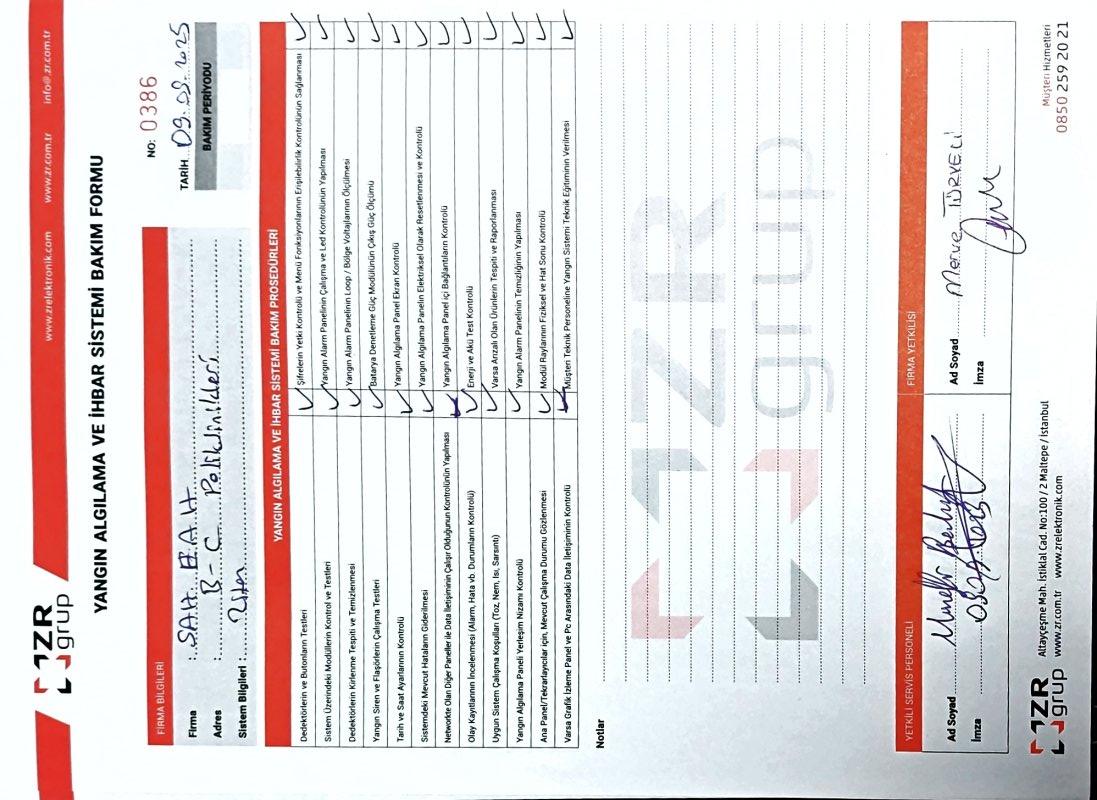 ZR
grup
www.zrelektronik.com www.zr.com.tr info@zr.com.tr
YANGIN ALGILAMA VE İHBAR SİSTEMİ BAKIM FORMU
NO: 0386
FİRMA BİLGİLERİ
TARİH 09.09.2025
Firma : SAH EAH
BAKIM PERİYODU
Adres : B-C Poliklinikleri
Sistem Bilgileri :
YANGIN ALGILAMA VE İHBAR SİSTEMİ BAKIM PROSEDÜRLERİ
Dedektörlerin ve Butonların Testleri ✓ Şifrelerin Yetki Kontrolü ve Menü Fonksiyonlarının Erişilebilirlik Kontrolünün Sağlanması ✓
Sistem Üzerindeki Modüllerin Kontrol ve Testleri ✓ Yangın Alarm Panelinin Çalışma ve Led Kontrolünün Yapılması ✓
Dedektörlerin Kirlenme Tespiti ve Temizlenmesi ✓ Yangın Alarm Panelinin Loop / Bölge Voltajlarının Ölçülmesi ✓
Yangın Siren ve Flaşörlerin Çalışma Testleri ✓ Batarya Denetleme Güç Modülünün Çıkış Güç Ölçümü ✓
Tarih ve Saat Ayarlarının Kontrolü ✓ Yangın Algılama Panel Ekran Kontrolü ✓
Sistemdeki Mevcut Hataların Giderilmesi ✓ Yangın Algılama Panelin Elektriksel Olarak Resetlenmesi ve Kontrolü ✓
Networkte Olan Diğer Paneller ile Data İletişiminin Çalışır Olduğunun Kontrolünün Yapılması ✓ Yangın Algılama Panel içi Bağlantıların Kontrolü ✓
Olay Kayıtlarının İncelenmesi (Alarm, Hata vb. Durumların Kontrolü) ✓ Enerji ve Akü Test Kontrolü ✓
Uygun Sistem Çalışma Koşulları (Toz, Nem, Isı, Sarsıntı) ✓ Varsa Arızalı Olan Ürünlerin Tespiti ve Raporlanması ✓
Yangın Algılama Paneli Yerleşim Nizamı Kontrolü ✓ Yangın Alarm Panelinin Temizliğinin Yapılması ✓
Ana Panel/Tekrarlayıcılar için, Mevcut Çalışma Durumu Gözlenmesi ✓ Modül Raylarının Fiziksel ve Hat Sonu Kontrolü ✓
Varsa Grafik İzleme Panel ve Pc Arasındaki Data İletişiminin Kontrolü ✓ Müşteri Teknik Personeline Yangın Sistemi Teknik Eğitiminin Verilmesi ✓
Notlar
ZR
grup
YETKİLİ SERVİS PERSONELİ FİRMA YETKİLİSİ
Ad Soyad
Ad Soyad Merve TÜRVELİ
İmza
İmza
ZR
grup
Altayçeşme Mah. İstiklal Cad. No:100 / 2 Maltepe / İstanbul
www.zr.com.tr www.zrelektronik.com
Müşteri Hizmetleri
0850 259 20 21